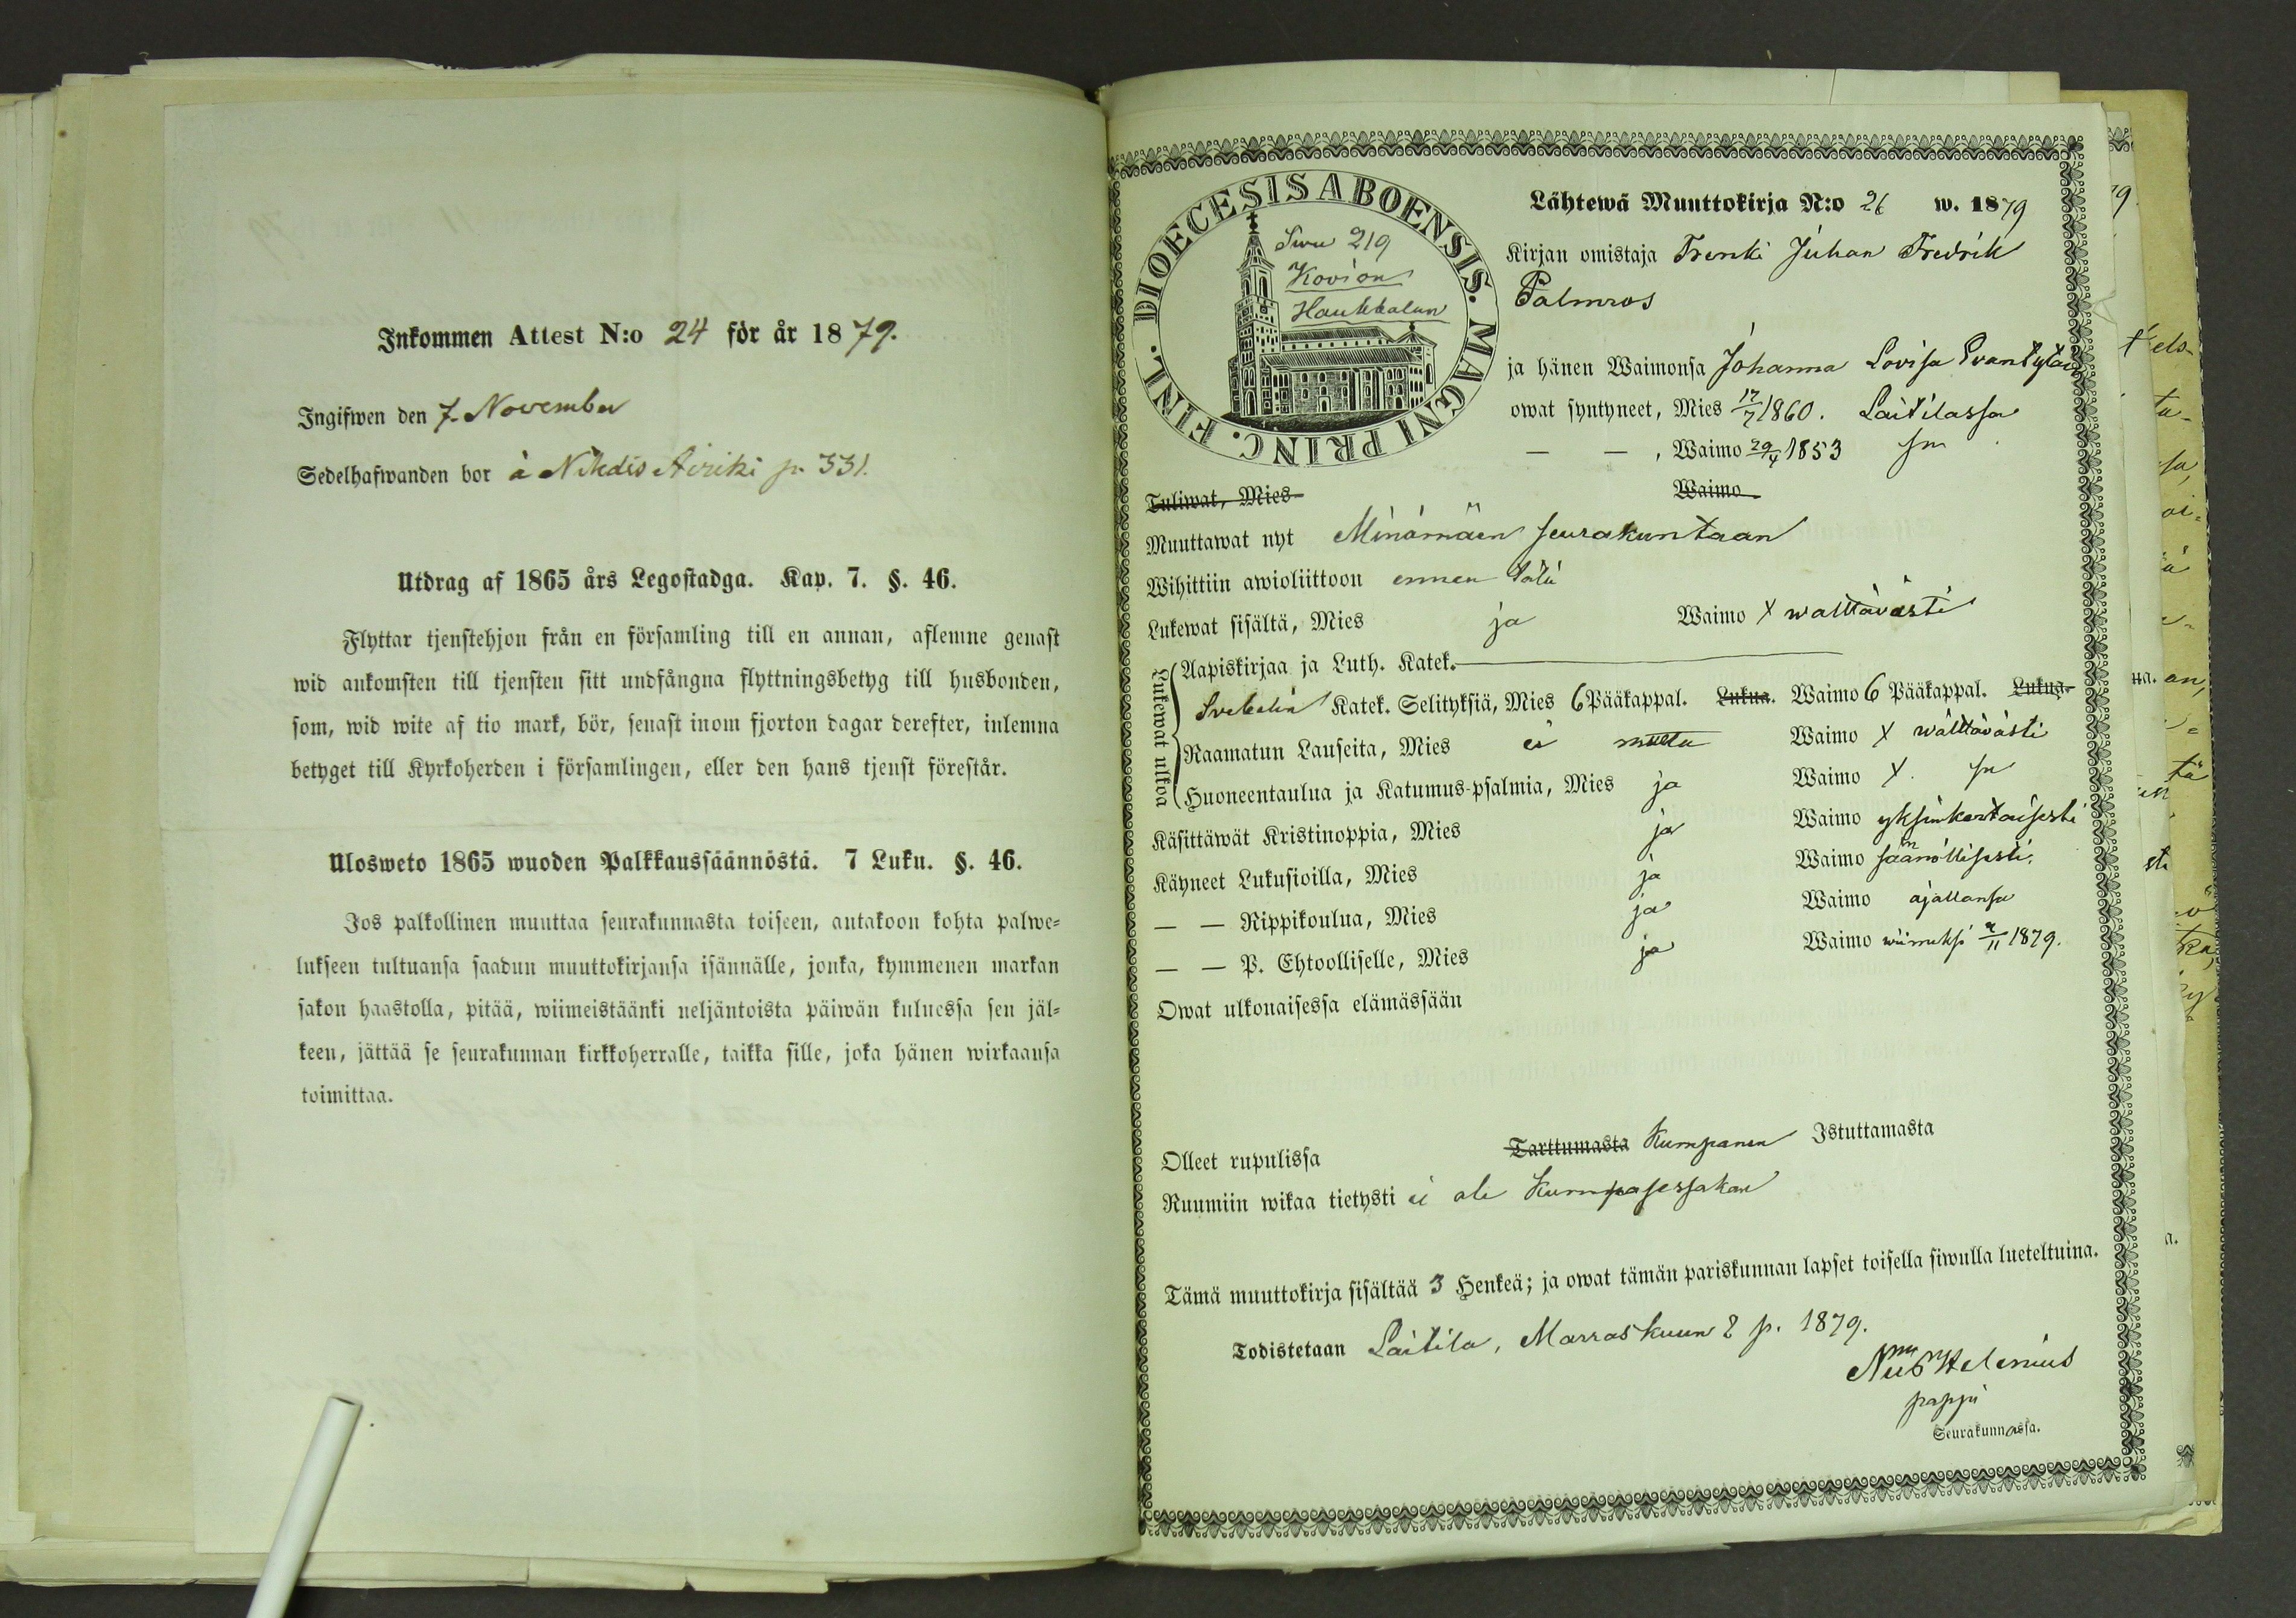 Inkommen Attest N:o 24 för år 1879.
Ingifwen den 7. November
Sedelhafwanden bor å Nihdis Airiki p. 331.
Utdrag af 1865 års Legostadga. Kap. 7. §. 46.
Flyttar tjenstehjon från en församling till en annan, aflemne genast
wid ankomsten till tjensten sitt undfångna flyttningsbetyg till husbonden,
som, wid wite af tio mark, bör, senast inom fjorton dagar derefter, inlemna
betyget till Kyrkoherden i församlingen, eller den hans tjenst förestår.
Ulosweto 1865 wuoden Palkkaussäännöstä. 7 Luku. §. 46.
Jos palkollinen muuttaa seurakunnasta toiseen, antakoon kohta palwe=
lukseen tultuansa saadun muuttokirjansa isännälle, jonka, kymmenen markan
sakon haastolla, pitää, wiimeistäänki neljäntoista päiwän kuluessa sen jäl=
keen, jättää se seurakunnan kirkkoherralle, taikka sille, joka hänen wirkaansa
toimittaa.
DIOECESIS ABOENSIS. MAGNI PRINC. FINL.
Siwu 219
Kovion
Haukkalan
Lähtewä Muuttokirja N:o 26 w. 1879
Kirjan omistaja Trenki Juhan Fredrik
Palmros
ja hänen Waimonsa Johanna Lovisa Evantytär
owat syntyneet, Mies 17/7 1860. Laitilassa
— — , Waimo 29/4 1853 sm
Tuliwat, Mies Waimo
Muuttawat nyt Minämäen seurakuntaan
Wihittiin awioliittoon ennen tätä
Lukewat sisältä, Mies ja Waimo x walttävästi
Lukewat ulkoa
Aapiskirjaa ja Luth. Katek.
Svebelin Katek. Selityksiä, Mies 6 Pääkappal. Lukua. Waimo 6 Pääkappal. Lukua.
Raamatun Lauseita, Mies ei muttu Waimo x wälttävästi
Huoneentaulua ja Katumus-psalmia, Mies ja Waimo x. sm
Käsittäwät Kristinoppia, Mies ja Waimo yksinkertaisesti
Käyneet Lukusioilla, Mies ja Waimo säänöllisesti.
— — Rippikoulua, Mies ja Waimo ajallansa
— — P. Ehtoolliselle, Mies ja Waimo wiimeksi 2/11 1879.
Owat ulkonaisessa elämässään
Olleet rupulissa Tarttumasta Kumpanen Istuttamasta
Ruumiin wikaa tietysti ei ole kumpasessakan
Tämä muuttokirja sisältää 3 Henkeä; ja owat tämän pariskunnan lapset toisella siwulla lueteltuina.
Todistetaan Laitila, Marraskuun 2 p. 1879.
Helenius
pappi
Seurakunnassa.